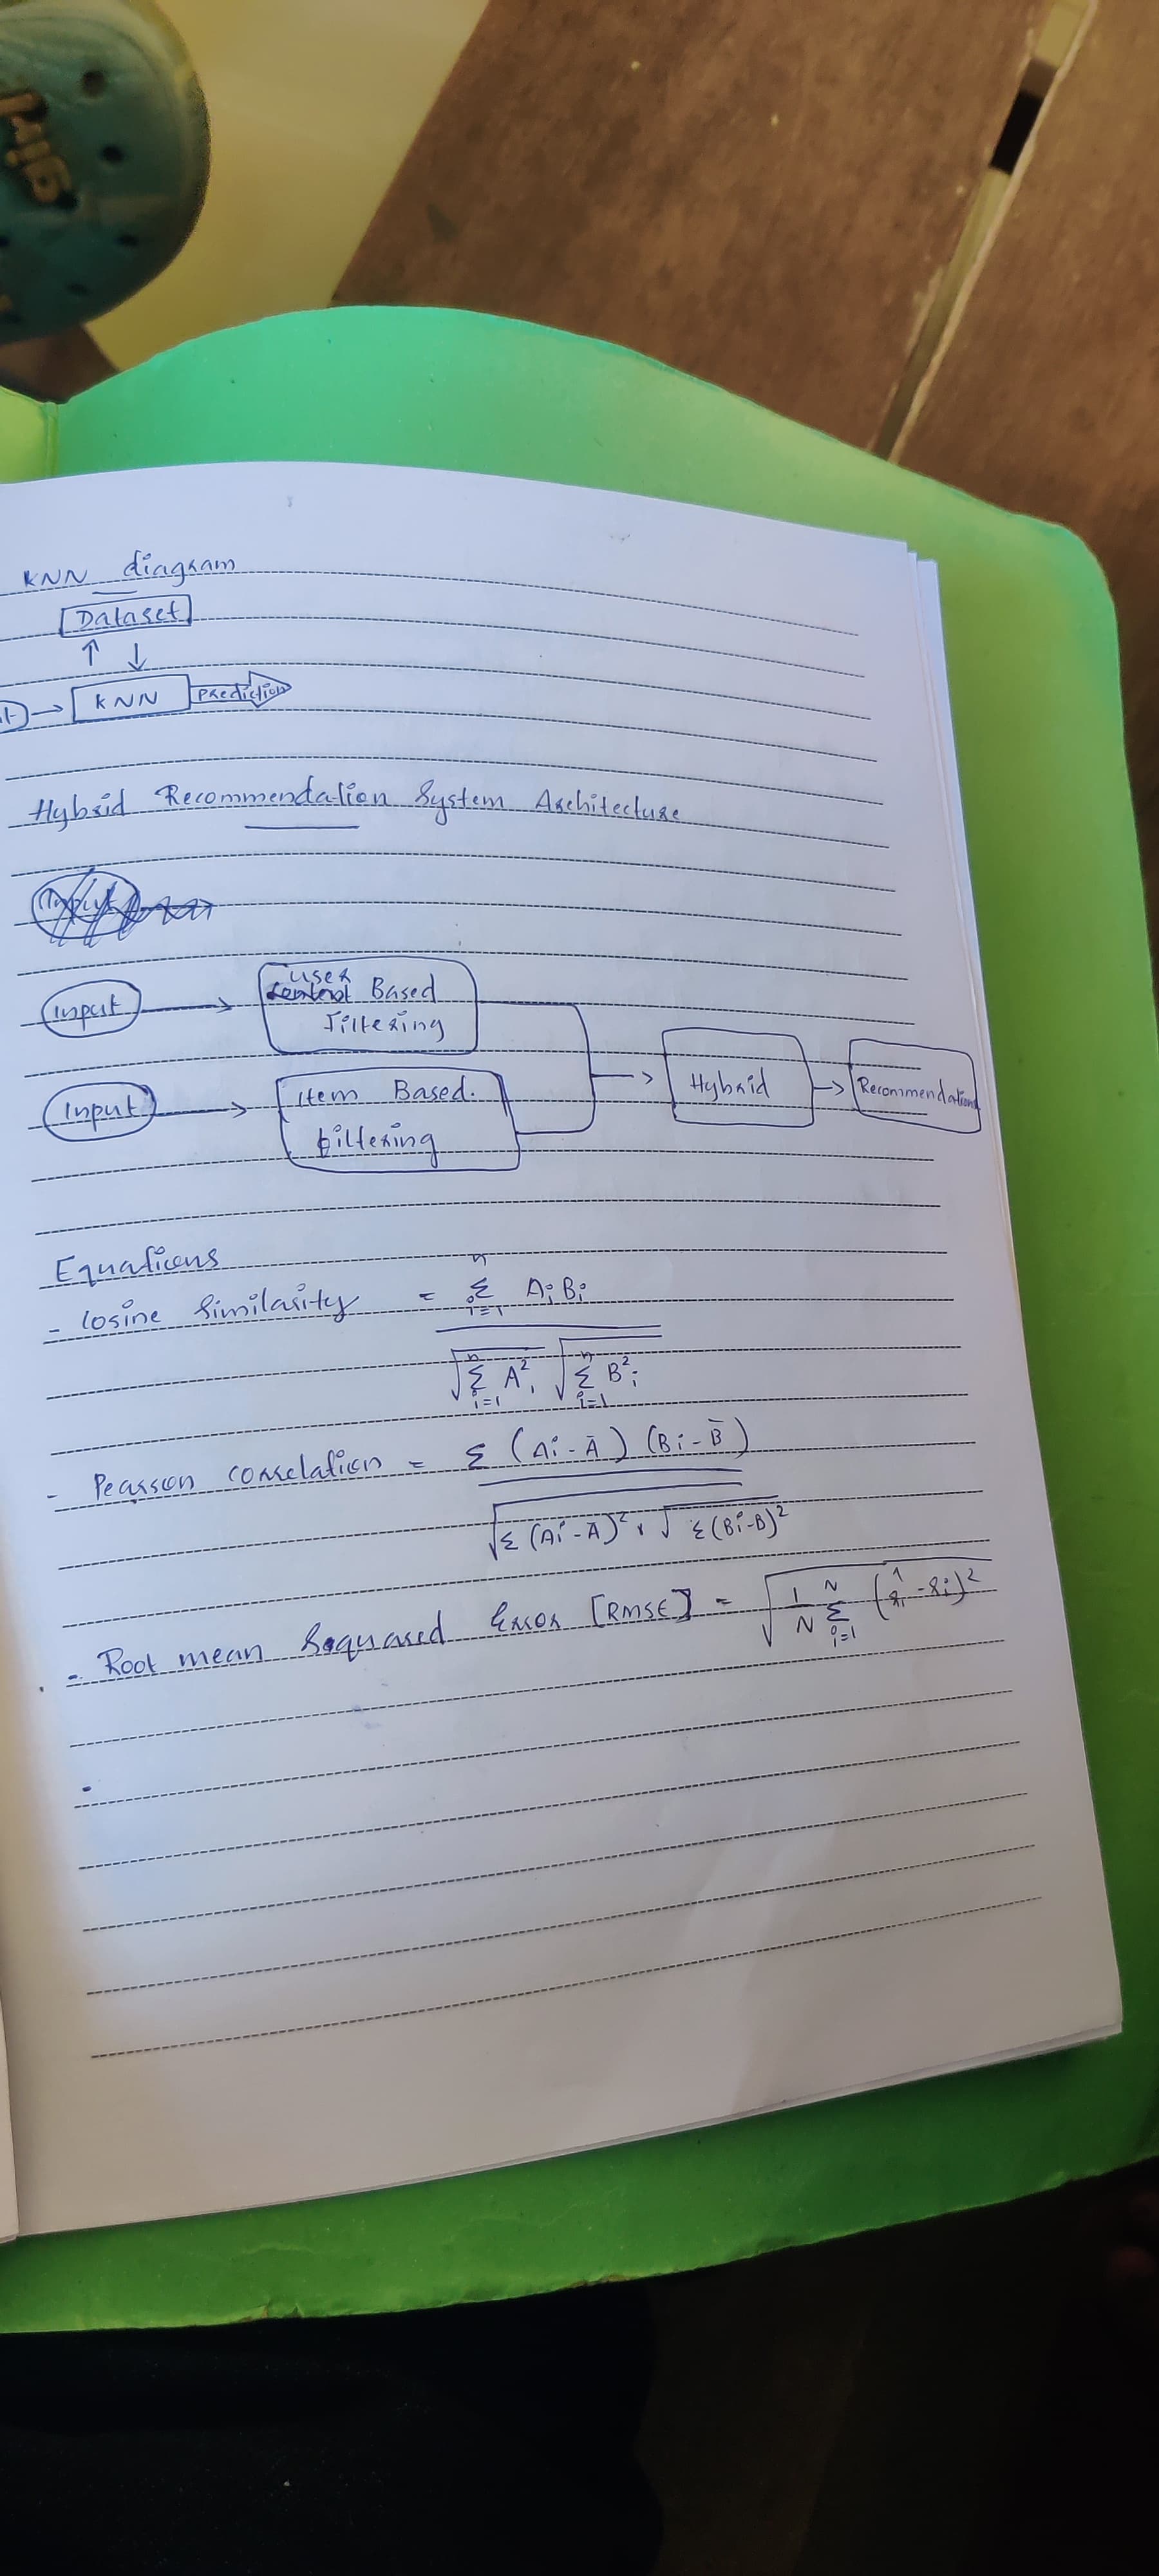 KNN diagram
Dataset
↑ ↓
→ KNN Prediction
Hybrid Recommendation System Architecture
Input → user Based
filtering
Input → item Based.
filtering
→ Hybrid → Recommendations
Equations
- Cosine Similarity = Σ^n_{i=1} A_i B_i
√(Σ^n_{i=1} A²_i) √(Σ^n_{i=1} B²_i)
- Pearson correlation = Σ (Ai - Ā) (Bi - B̄)
√Σ (Ai - Ā)² × √Σ (Bi - B)²
- Root mean Squared Error [RMSE] = √(1/N Σ^N_{i=1} (r̂_i - r_i)²)